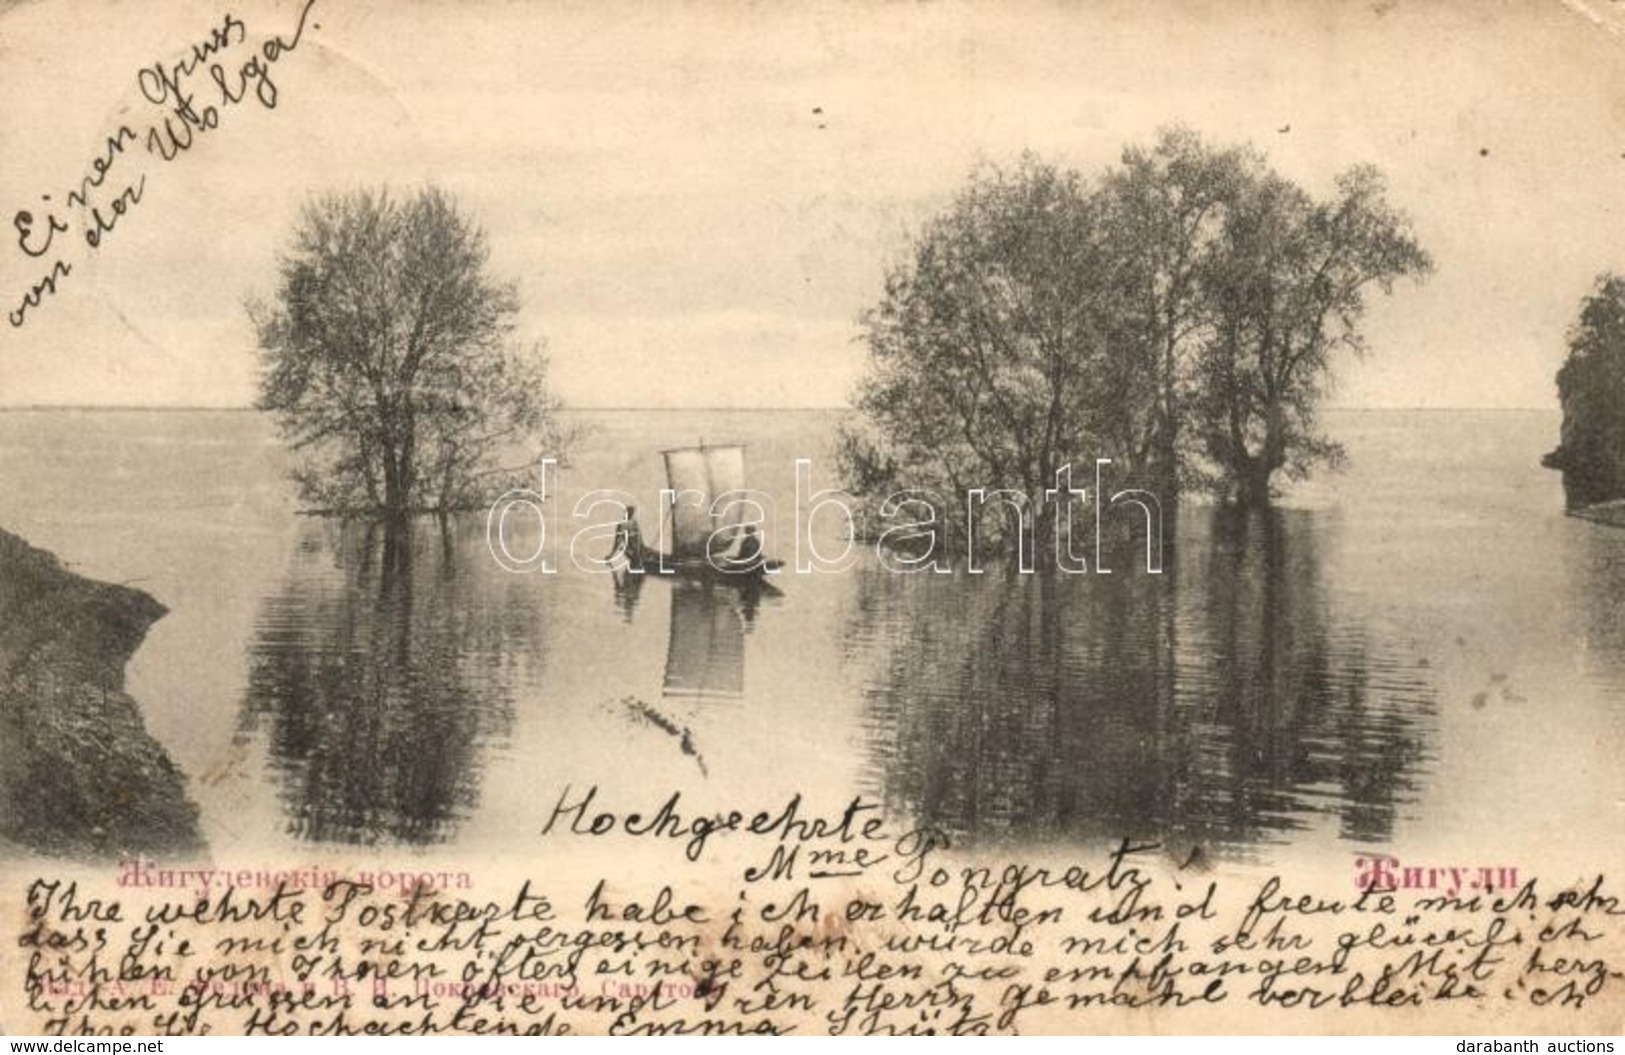 Einen Gruss
von der Wolga.
darabanth
Hochgeehrte
Mme Pongratz,
Жигуленскія ворота
Жигули
Ihre wehrte Postkarte habe ich erhalten und freute mich sehr
dass Sie mich nicht vergessen haben. würde mich sehr glücklich
fühlen von Ihnen öfters einige Zeilen zu empfangen. Mit herz-
lichen Grüssen an Sie und Iren Herrn gemahl verbleibe ich
Ihre Sie Hochachtende Emma Schütz.
delcampe.net
darabanth auctions